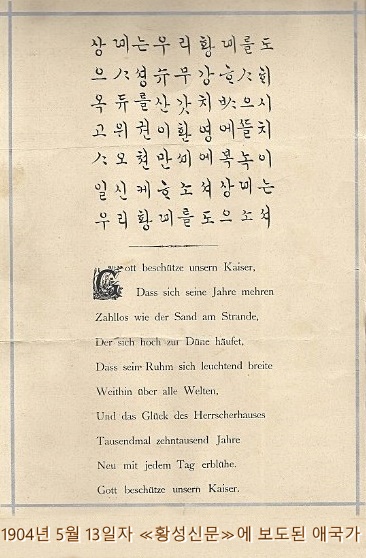 상뎨는우리황뎨를도
으ᄉᆞ셩슈무강ᄒᆞᄉᆞᄒᆡ
옥듀를산갓치ᄡᆞ으시
고위권이환영에ᄯᅳᆯ치
ᄉᆞ오쳔만세에복녹이
일신케ᄒᆞ소셔상뎨는
우리황뎨를도으소셔
Gott beschütze unsern Kaiser,
Dass sich seine Jahre mehren
Zahllos wie der Sand am Strande,
Der sich hoch zur Düne häufet,
Dass sein Ruhm sich leuchtend breite
Weithin über alle Welten,
Und das Glück des Herrscherhauses
Tausendmal zehntausend Jahre
Neu mit jedem Tag erblühe.
Gott beschütze unsern Kaiser.
1904년 5월 13일자 ≪황성신문≫에 보도된 애국가